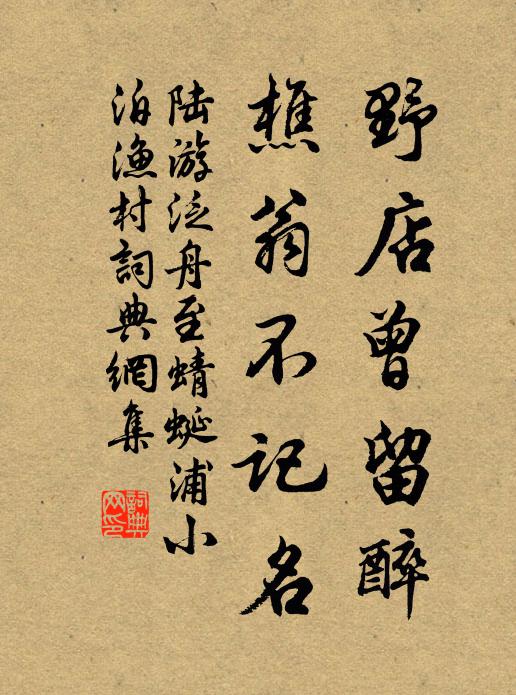 野店曾留醉
樵翁不记名
陆游泛舟至蜻蜓浦小
泊漁村詞典網集
詞典網印